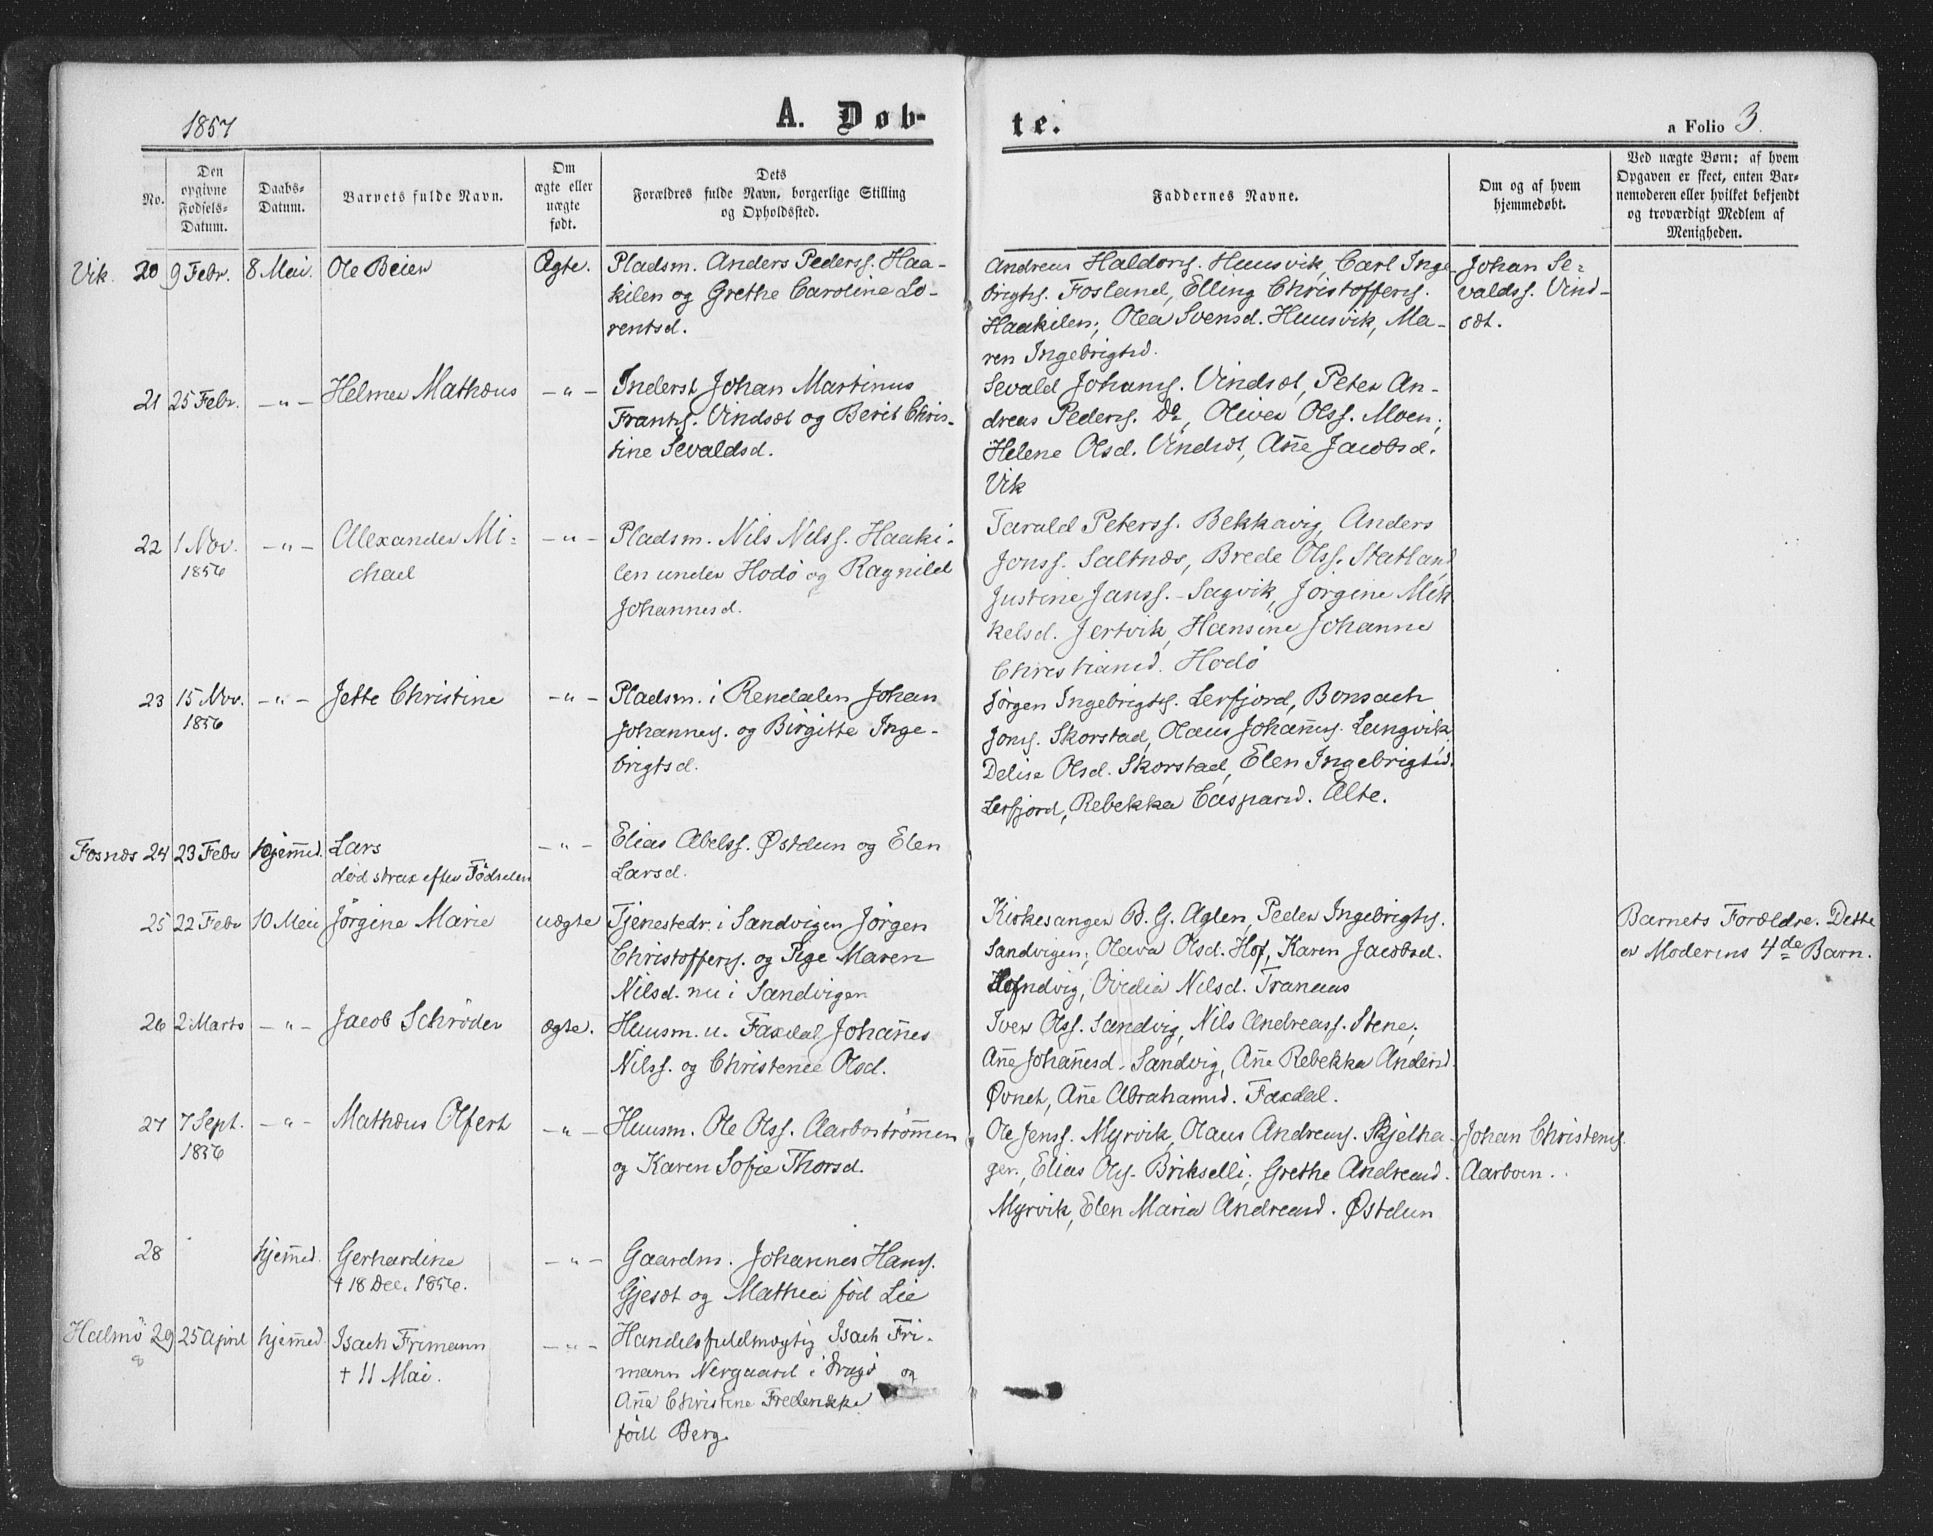 1857
A. Døb-
te.
a Folio 3.
No.
Den opgivne Fødsels-Datum.
Daabs-Datum.
Barnets fulde Navn.
Om ægte eller uægte født.
Dets Forældres fulde Navn, borgerlige Stilling og Opholdssted.
Faddernes Navne.
Om og af hvem hjemmedøbt.
Ved uægte Børn: af hvem Opgaven er skeet, enten Barnemoderen eller hvilket bekjendt og troværdigt Medlem af Menigheden.
Vik. 20 9 Febr. 8 Mai. Ole Beier Ægte.
Pladsm. Anders Pederss. Haa-
kilen og Grethe Caroline Lo-
rentsd.
Andreas Haldors. Huusvik, Carl Inge-
brigts. Fosland, Elling Christoffers.
Haakilen; Olea Svensd. Huusvik, Ma-
ren Ingebrigtsd.
Johan Se-
valdss. Vind-
sæt.
21 25 Febr. -"- Helmer Mathæus -"-
Inderst Johan Martinus
Frants. Vindsæt og Berit Chris-
tine Sevaldsd.
Sevald Johans. Vindsæt, Peter An-
dreas Peders. Do, Oliver Olss. Moen;
Helene Olsd. Vindsæt, Ane Jacobsd.
Vik
22 1 Nov. 1856 -"- Alexander Mi-
chael -"-
Pladsm. Nils Nilss. Haaki-
len under Hodø og Ragnild
Johannesd.
Tarald Peterss. Bekkavig, Anders
Jonss. Saltnæs, Brede Olss. Statland
Justine Janss. Sagvik, Jørgine Mik-
kelsd. Jertvik, Hansine Johanne
Christiansd. Hodø
23 15 Nov. 1856 -"- Jette Christine -"-
Pladsm. i Rendalen Johan
Johannes. og Birgitte Inge-
brigtsd.
Jørgen Ingebrigts. Lerfjord, Bonsach
Jons. Skorstad, Olaus Johans. Lungvik.
Delise Olsd. Skorstad, Elen Ingebrigtsd.
Lerfjord, Rebekka Caspard. Alte.
Fosnæs 24 23 Febr hjemmed. Lars
død strax efter Fødselen -"-
Elias Abelss. Østdun og Elen
Larsd.
25 22 Febr 10 Mai Jørgine Marie uægte
Tjenestedr. i Sandvigen Jørgen
Christoffers. og Pige Maren
Nilsd. nu i Sandvigen
Kirkesanger B. G. Aglen, Peder Ingebrigts.
Sandvigen; Olava Olsd. Hof, Karen Jacobsd.
Ovidia Nilsd. Tranaas
Barnets Forældre. Dette
er Moderens 4de Barn.
26 2 Marts -"- Jacob Schrøder ægte.
Huusm. u. Faxdal Johanes
Nilss. og Christence Olsd.
Iver Olss. Sandvig, Nils Andreass. Stene;
Ane Johanesd. Sandvig, Ane Rebekka Andersd.
Øvnet, Ane Abrahamsd. Faxdal.
27 7 Sept. 1856 -"- Mathæus Olfert -"-
Huusm. Ole Olss. Aarbostrømmen
og Karen Sofie Thorsd.
Ole Jenss. Myrvik, Olaus Andreas. Skjelha-
gen, Elias Ols. Brikselli; Grethe Andreasd.
Myrvik, Elen Maria Andreasd. Østdun
Johan Christens.
Aarboen.
28 hjemmed. Gerhardine
† 18 Dec. 1856. -"-
Gaardm. Johannes Hans.
Gjesæt og Mathea fød Lie
Halmø 29 25 April hjemmed Isach Frimann
† 11 Mai. -"-
Handelsfuldmægtig Isach Fri-
mann Nergaard i og
Ana Christine Frederikke
född Berg.